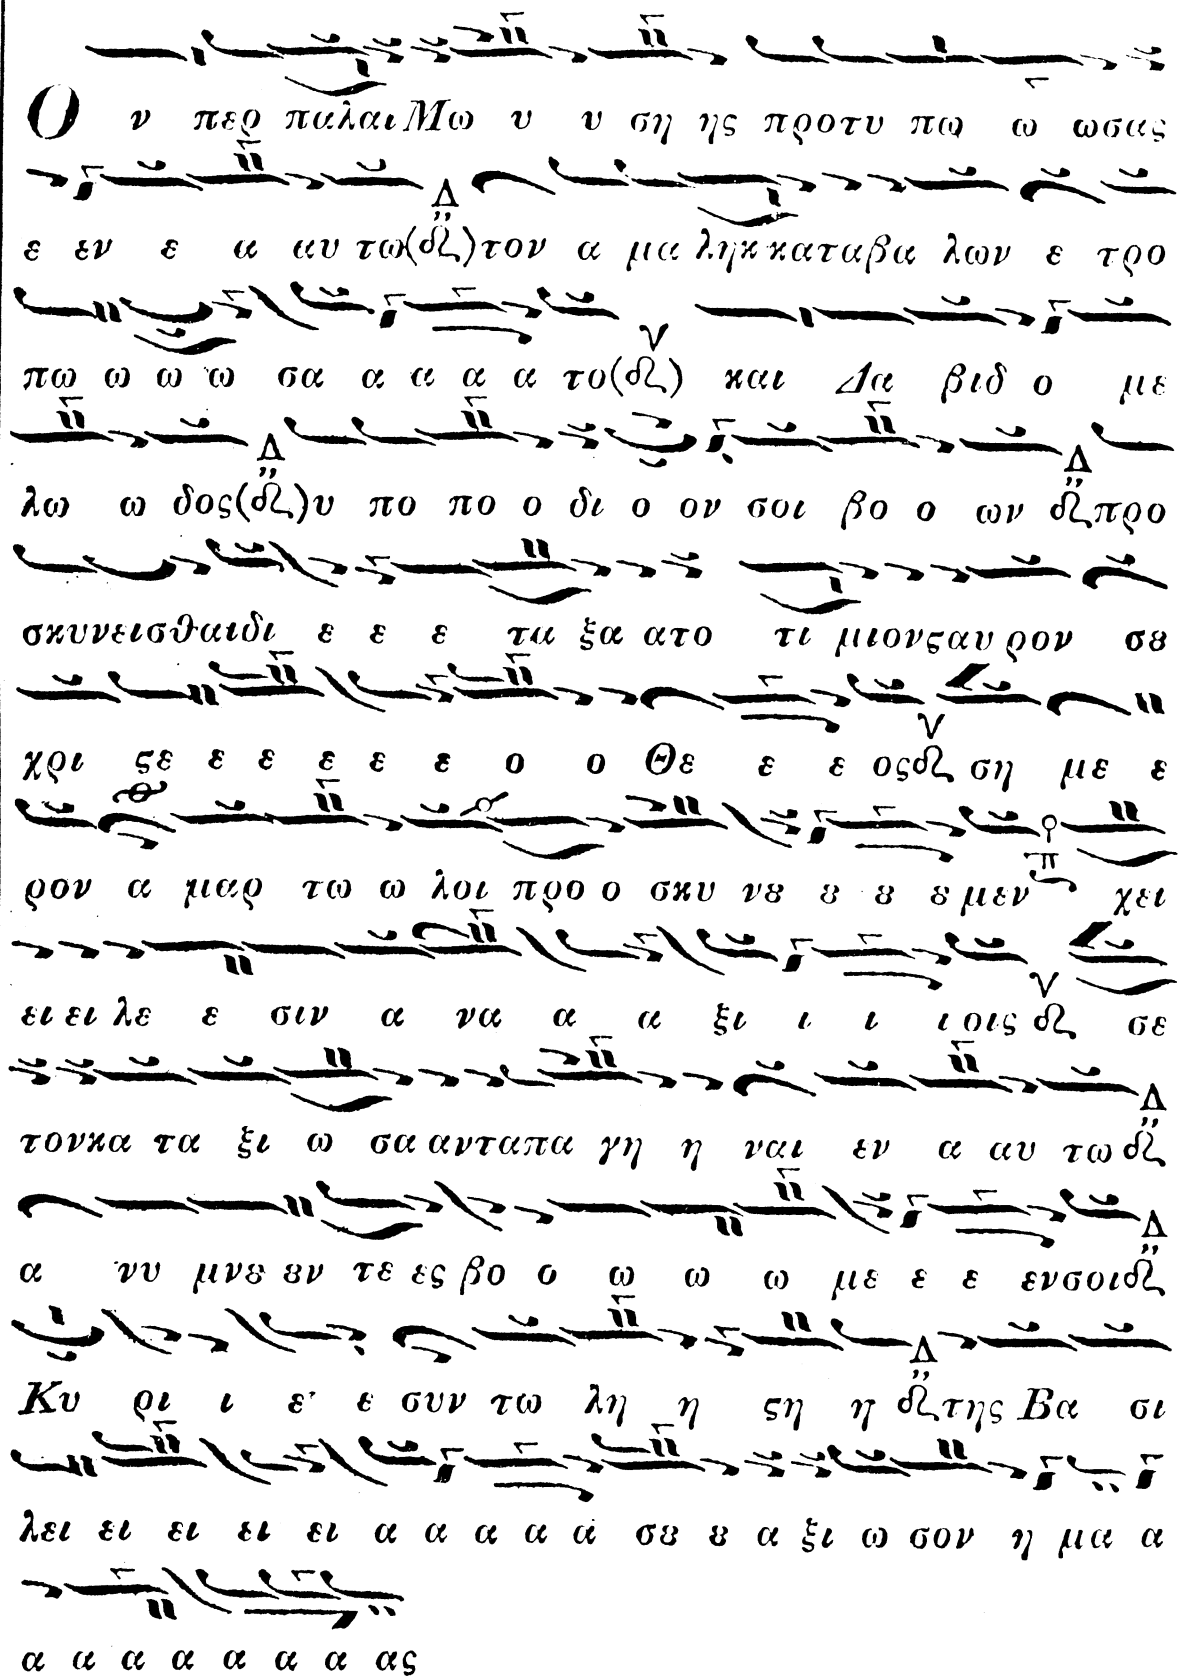 Ο ν περ παλαι Μω υ υ ση ης προτυ πω ω ωσας
ε εν ε α αυ τω( )τον α μα ληκ καταβα λων ε τρο
πω ω ω ω σα α α α α το( ) και Δα βιδ ο με
λω ω δος( )υ πο πο ο δι ο ον σοι βο ο ων προ
σκυνεισθαιδι ε ε ε τα ξα ατο τι μιονϛαυ ρον σȣ
χρι ϛε ε ε ε ε ε ο ο Θε ε ε ος ση με ε
ρον α μαρ τω ω λοι προ ο σκυ νȣ ȣ ȣ ȣ μεν χει
ει ει λε ε σιν α να α α ξι ι ι ι οις σε
τονκα τα ξι ω σα ανταπα γη η ναι εν α αυ τω
α νυ μνȣ ȣν τε ες βο ο ω ω ω με ε ε ενσοι
Κυ ρι ι ε ε συν τω λη η ϛη η της Βα σι
λει ει ει ει ει α α α α α σȣ ȣ α ξι ω σον η μα α
α α α α α α α ας